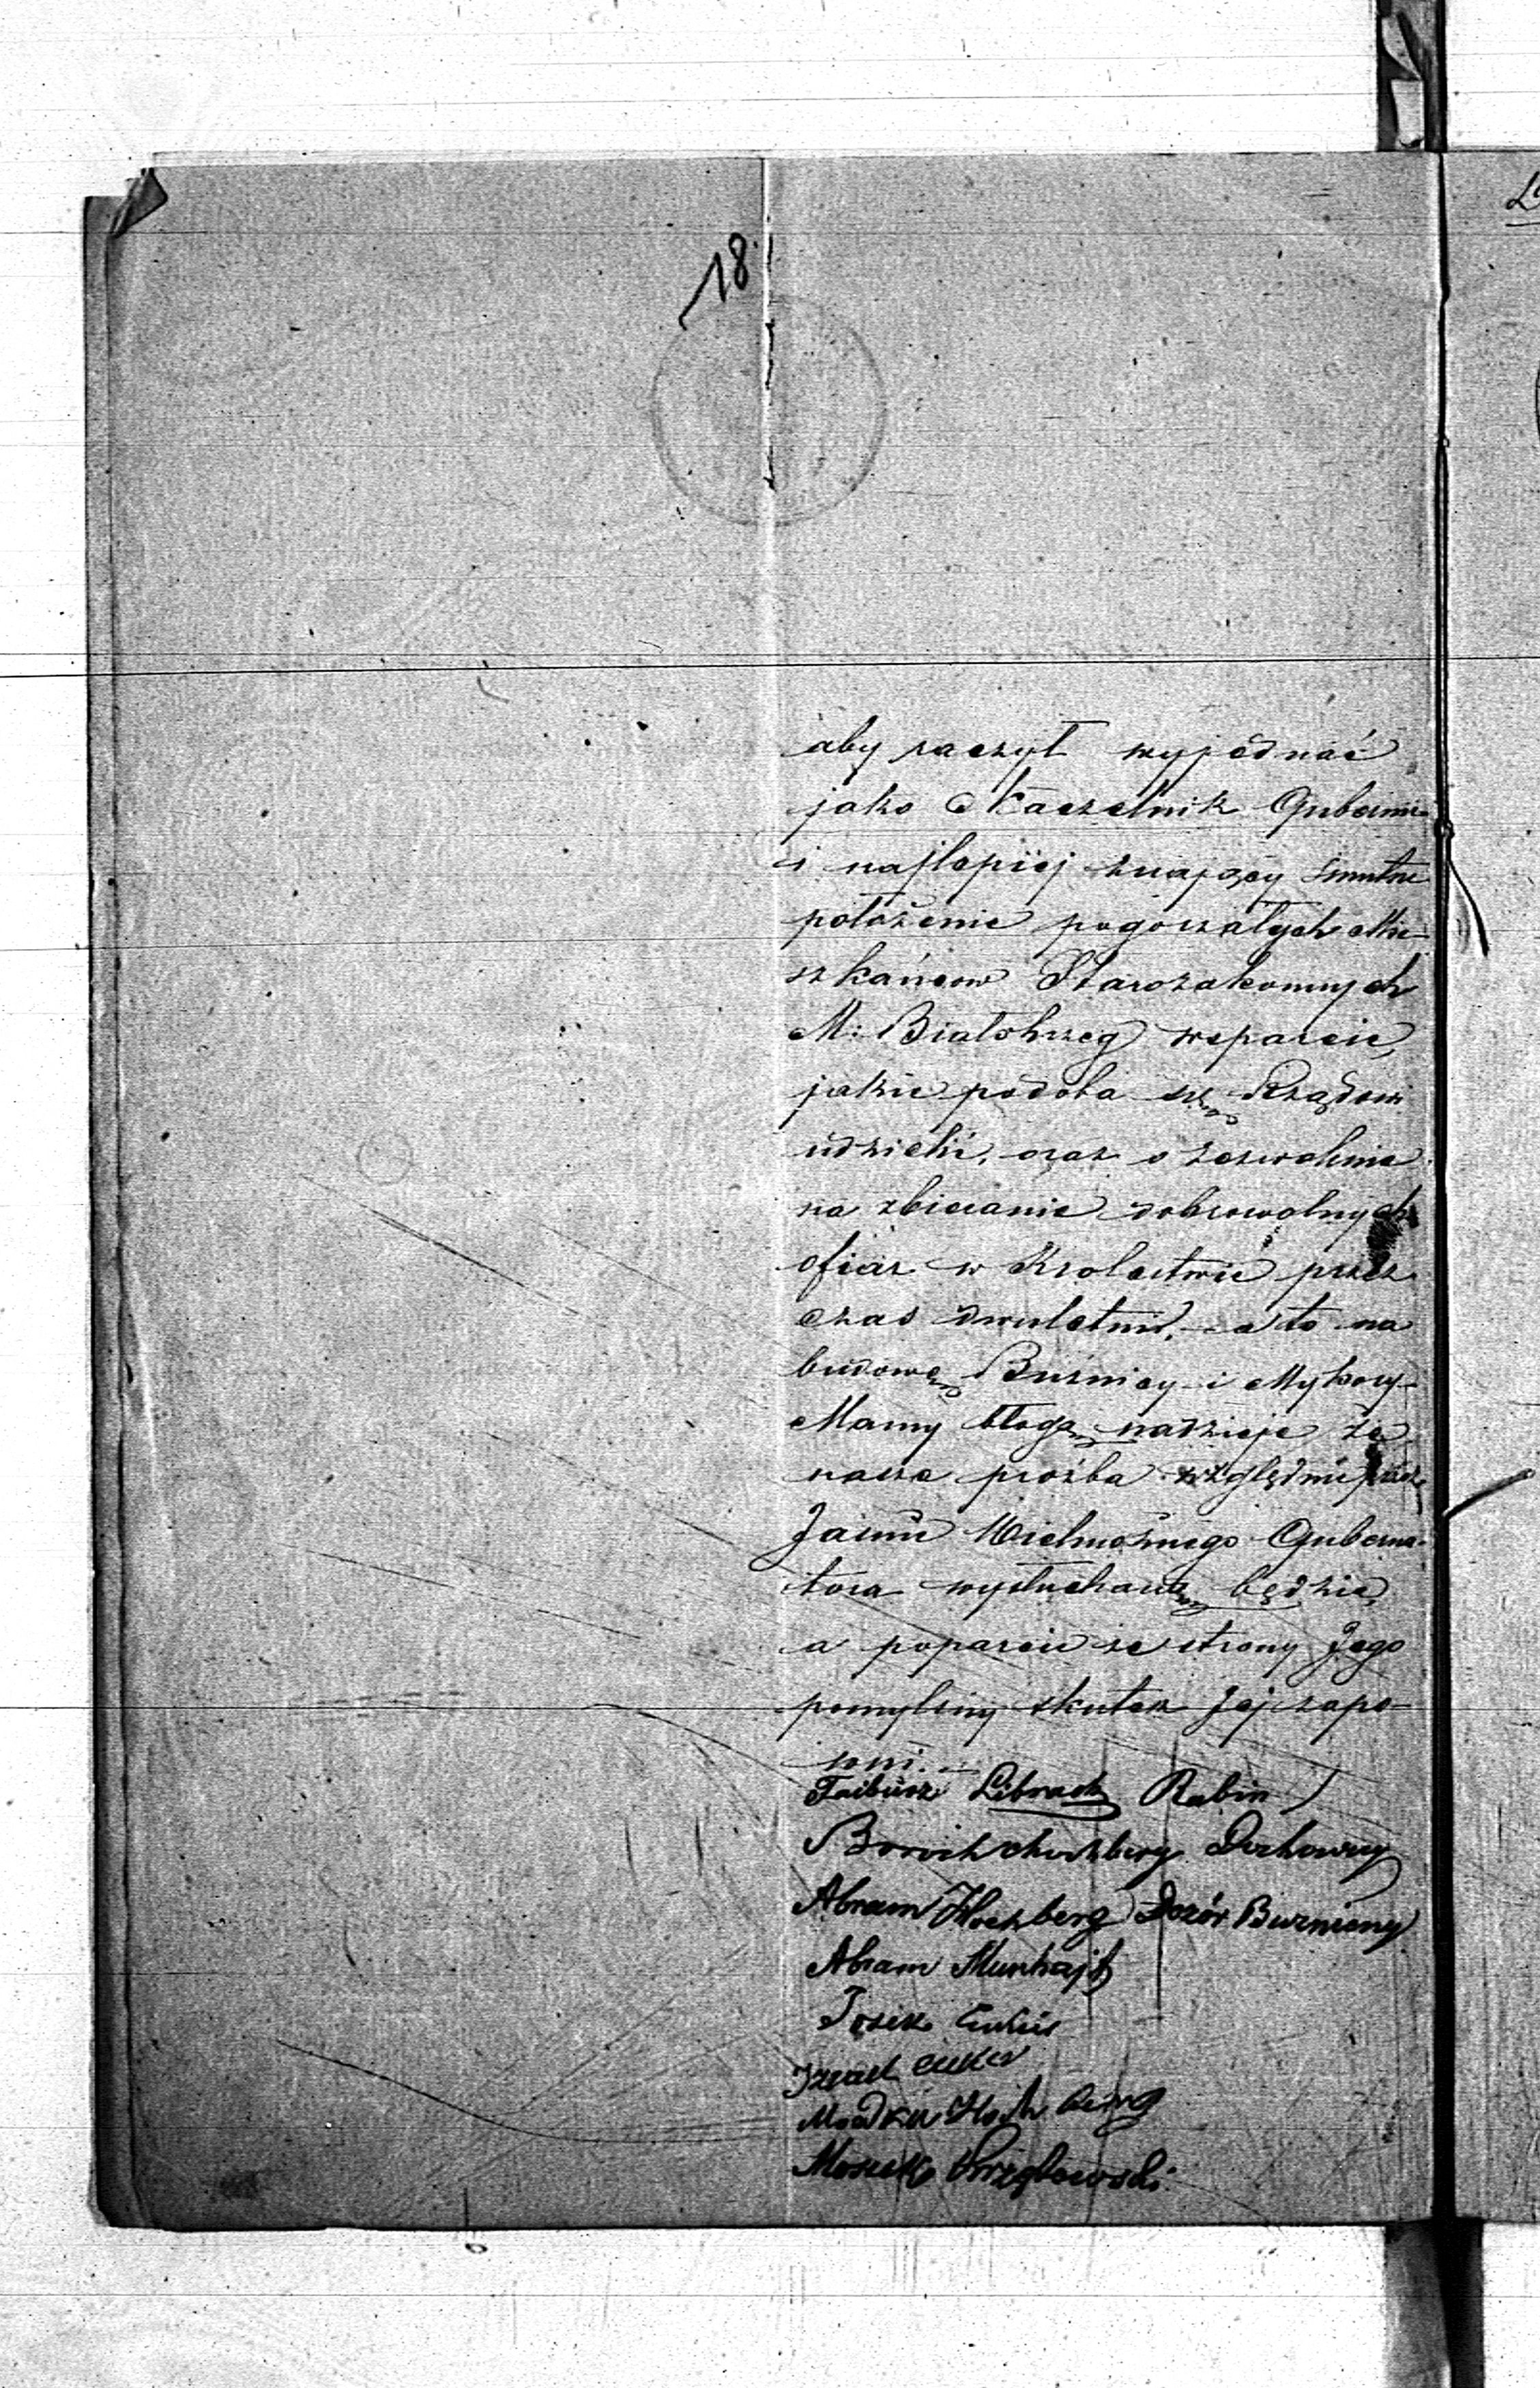 18
aby raczył wyjednać
jako Naczelnik Gubernii
i najlepiej znający smutne
położenie pogorzałych Mie-
szkańców Starozakonnych
M: Białobrzeg wsparcie,
jakie podoba się Rządowi
udzielić, oraz o zezwolenie
na zbieranie dobrowolnych
ofiar w Krolestwie przez
czas dwuletni, a to na
budowę Buźnicy i Mykwy-
Mamy błogą nadzieje że
nasza prożba względnie przez
Jaśnie Wielmożnego Guberna-
tora wysłuchaną będzie,
a poparcie ze strony Jego
pomyślny skutek Jej zape-
wni.
Lejbusz Rabin
Boruch Duchowny
Abram Hochberg Dozór Buzniczny
Abram
Josek
Izrael Cukier
Modka Hochberg
Mosiek